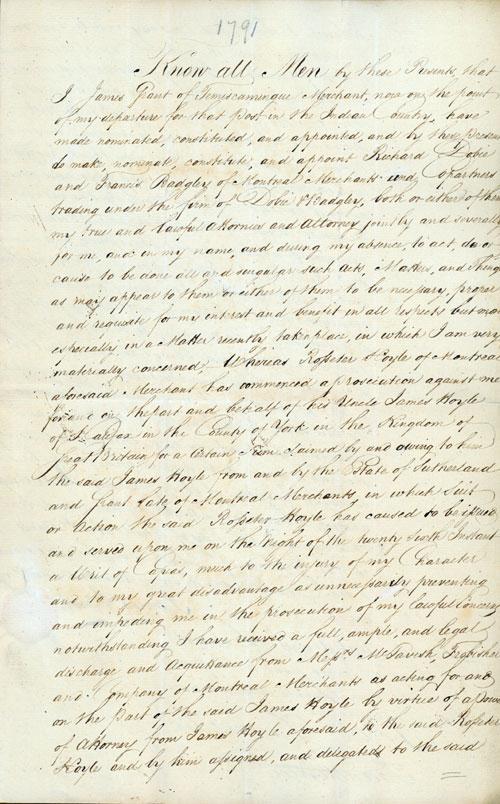 1791
Know all Men by these Presents, that
I James Grant of Temiscamingue Merchant, now on the point
of my departure for that post in the Indian Country, have
made nominated, constituted, and appointed, and by these presents
do make, nominate, constitute, and appoint Richard Dobie
and Francis Badgley of Montreal Merchants and Copartners
trading under the firm of Dobie & Badgley, both or either of them
my true and lawful Attornies and Attorney jointly and severally
for me, and in my name, and during my absence, to act, do or
cause to be done all and singular such acts, Matters, and Things
as may appear to them or either of them to be necessary, proper
and requisite for my interest and benefit in all respects but more
especially in a Matter recently taken place, in which I am very
materially concerned, Whereas Rosseter Hoyle of Montreal
aforesaid Merchant has commenced a prosecution against me
for and on the part and behalf of his Uncle James Hoyle
of Halifax in the County of York in the Kingdom of
Great Britain for a certain Sum claimed by and owing to him
the said James Hoyle from and by the Estate of Sutherland
and Grant late of Montreal Merchants, in which Suit
or Action the said Rosseter Hoyle has caused to be issued
and served upon me on the night of the twenty sixth Instant
a Writ of Capias, much to the injury of my Character
and to my great disadvantage as unnecessarily preventing
and impeding me in the prosecution of my lawful Concerns
notwithstanding I have received a full, ample, and legal
discharge and Acquittance from Messrs McTavish, Frobisher
and Company of Montreal Merchants as acting for and
on the Part of the said James Hoyle by virtue of a Power
of Attorney from James Hoyle aforesaid, to the said Rosseter
Hoyle and by him assigned, and delegated to the said